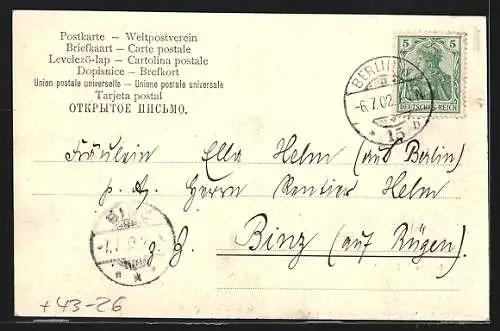 Postkarte – Weltpostverein
Briefkaart – Carte postale
Levelező-lap – Cartolina postale
Dopisnice – Brefkort
Union postale universelle – Unione postale universale
Tarjeta postal
ОТКРЫТОЕ ПИСЬМО.
5 5
DEUTSCHES REICH
BERLIN
-6.7.02
* 15 b
Fräulein Ella Helm (aus Berlin)
p. A. Herrn Rentier Helm
z. Z. Binz (auf Rügen).
+43-26